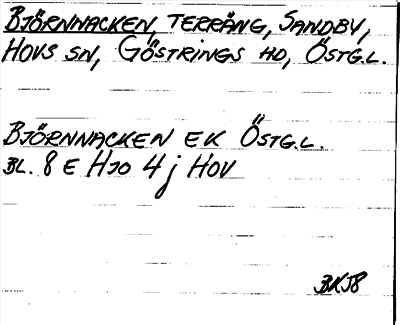 BJÖRNNACKEN, TERRÄNG, SANDBY,
HOVS SN, GÖSTRINGS HD, ÖSTG.L.
BJÖRNNACKEN EK ÖSTG.L.
BL. 8 E HJO 4 j HOV